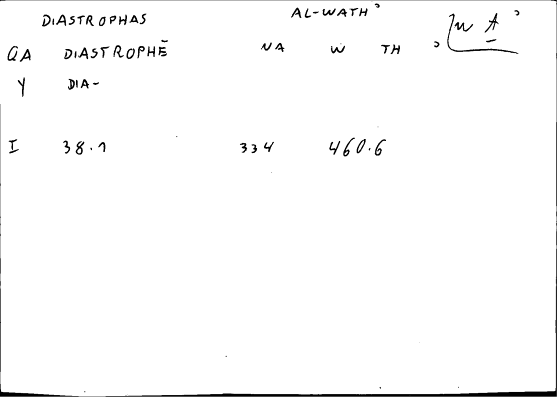 DIASTROPHAS AL-WATHʾ
QA DIASTROPHĒ NA W TH ʾ
Y DIA-
I 38.1 334 460.6